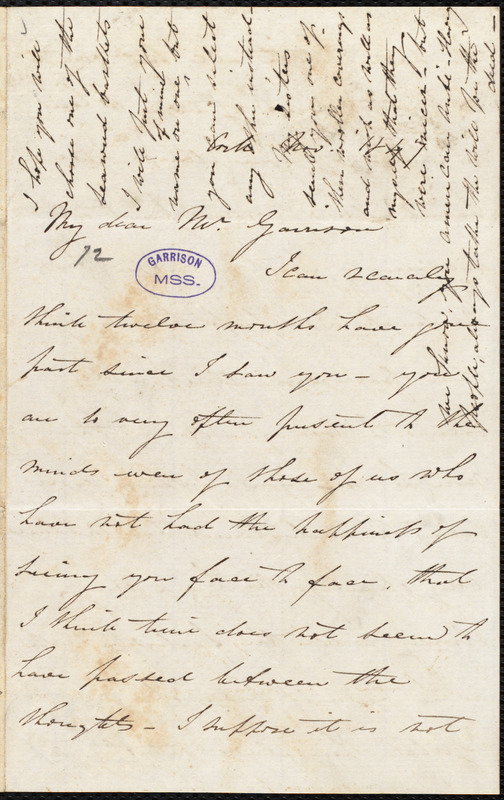 Cork Nov 14
My dear Mr. Garrison
72
GARRISON
MSS.
I can scarcely
think twelve months have gone
past since I saw you – you
are so very often present to the
minds even of those of us who
have not had the happiness of
seeing you face to face, that
I think time does not seem to
have passed between the
thoughts – I suppose it is not
I hope you will
choose one of the
several baskets
I will put your
name on one but
you can select
any other instead
sisters
send you one of
their
and wish as well as
myself that they
were – but
I am sure, you American Anti-Slavery
people, always take the will for the
deed –